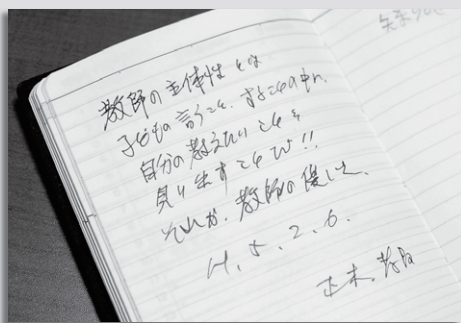 教師の主体性とは
子どもの言うこと、することの中に、
自分の教えたいことを
見い出すことだ!!
それが、教師の優しさ。
H.5.2.6.
正木